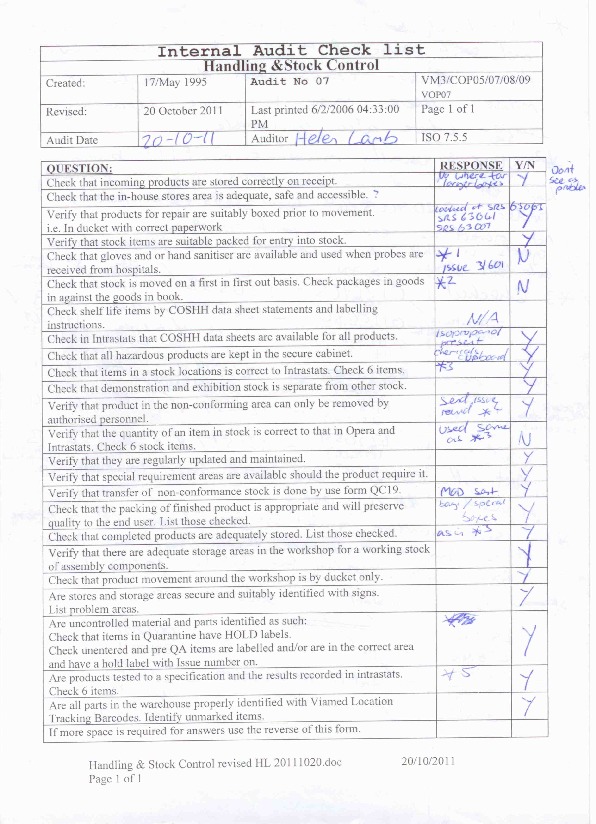 Internal Audit Check list
Handling &Stock Control
Created: 17/May 1995 Audit No 07 VM3/COP05/07/08/09
VOP07
Revised: 20 October 2011 Last printed 6/2/2006 04:33:00 PM Page 1 of 1
Audit Date 20-10-11 Auditor Helen Lamb ISO 7.5.5
QUESTION: RESPONSE Y/N
Check that incoming products are stored correctly on receipt. Y
Don't
see as
Check that the in-house stores area is adequate, safe and accessible. ?
Verify that products for repair are suitably boxed prior to movement. looked at SRS 63065
i.e. In ducket with correct paperwork SRS 63061 Y
SRS 63007
Verify that stock items are suitable packed for entry into stock. Y
Check that gloves and or hand sanitiser are available and used when probes are *1 N
received from hospitals. issue 31601
Check that stock is moved on a first in first out basis. Check packages in goods *2 N
in against the goods in book.
Check shelf life items by COSHH data sheet statements and labelling N/A
instructions.
Check in Intrastats that COSHH data sheets are available for all products. isopropanol present Y
Check that all hazardous products are kept in the secure cabinet. chemicals cupboard Y
Check that items in a stock locations is correct to Intrastats. Check 6 items. *3 Y
Check that demonstration and exhibition stock is separate from other stock. Y
Verify that product in the non-conforming area can only be removed by Send issue Y
authorised personnel. round *4
Verify that the quantity of an item in stock is correct to that in Opera and used same N
Intrastats. Check 6 stock items. as *3
Verify that they are regularly updated and maintained. Y
Verify that special requirement areas are available should the product require it. Y
Verify that transfer of non-conformance stock is done by use form QC19. Y
Check that the packing of finished product is appropriate and will preserve bag / special Y
quality to the end user. List those checked. boxes
Check that completed products are adequately stored. List those checked. as in *3 Y
Verify that there are adequate storage areas in the workshop for a working stock Y
of assembly components.
Check that product movement around the workshop is by ducket only. Y
Are stores and storage areas secure and suitably identified with signs. Y
List problem areas.
Are uncontrolled material and parts identified as such:
Check that items in Quarantine have HOLD labels. Y
Check unentered and pre QA items are labelled and/or are in the correct area
and have a hold label with Issue number on.
Are products tested to a specification and the results recorded in intrastats. *5 Y
Check 6 items.
Are all parts in the warehouse properly identified with Viamed Location Y
Tracking Barcodes. Identify unmarked items.
If more space is required for answers use the reverse of this form.
Handling & Stock Control revised HL 20111020.doc 20/10/2011
Page 1 of 1